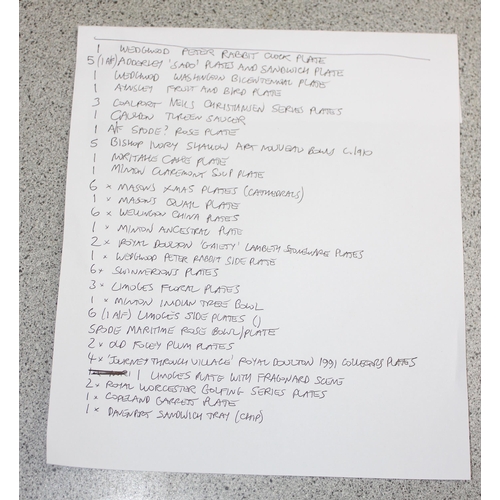 1 WEDGWOOD PETER RABBIT CLOCK PLATE
5 (1 A/F) ADDERLEY 'SADO' PLATES AND SANDWICH PLATE
1 WEDGWOOD WASHINGTON BICENTENNIAL PLATE
1 AYNSLEY FRUIT AND BIRD PLATE
3 COALPORT NEIL'S CHRISTIANSEN SERIES PLATES
1 CAULDON TUREEN SAUCER
1 A/F SPODE? ROSE PLATE
5 BISHOP IVORY SHALLOW ART NOUVEAU BOWLS C.1910
1 NORITAKE CAKE PLATE
1 MINTON CLAREMONT SOUP PLATE
6 × MASONS XMAS PLATES (CATHEDRALS)
1 × MASONS QUAIL PLATE
6 × WELLINGTON CHINA PLATES
1 × MINTON ANCESTRAL PLATE
2 × ROYAL DOULTON 'GAIETY' LAMBETH STONEWARE PLATES
1 × WEDGWOOD PETER RABBIT SIDE PLATE
6 × SWINNERTONS PLATES
3 × LIMOGES FLORAL PLATES
1 × MINTON INDIAN TREE BOWL
6 (1 A/F) LIMOGES SIDE PLATES ()
SPODE MARITIME ROSE BOWL/PLATE
2 × OLD FOLEY PLUM PLATES
4 × 'JOURNEY THROUGH VILLAGE' ROYAL DOULTON 1991 COLLECTORS PLATES
1 LIMOGES PLATE WITH FRAGONARD SCENE
2 × ROYAL WORCESTER GOLFING SERIES PLATES
1 × COPELAND GARRETT PLATE
1 × DAVENPORT SANDWICH TRAY (CHIP)